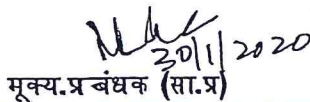 30/1/2020
मूक्य.प्रबंधक (सा.प्र)